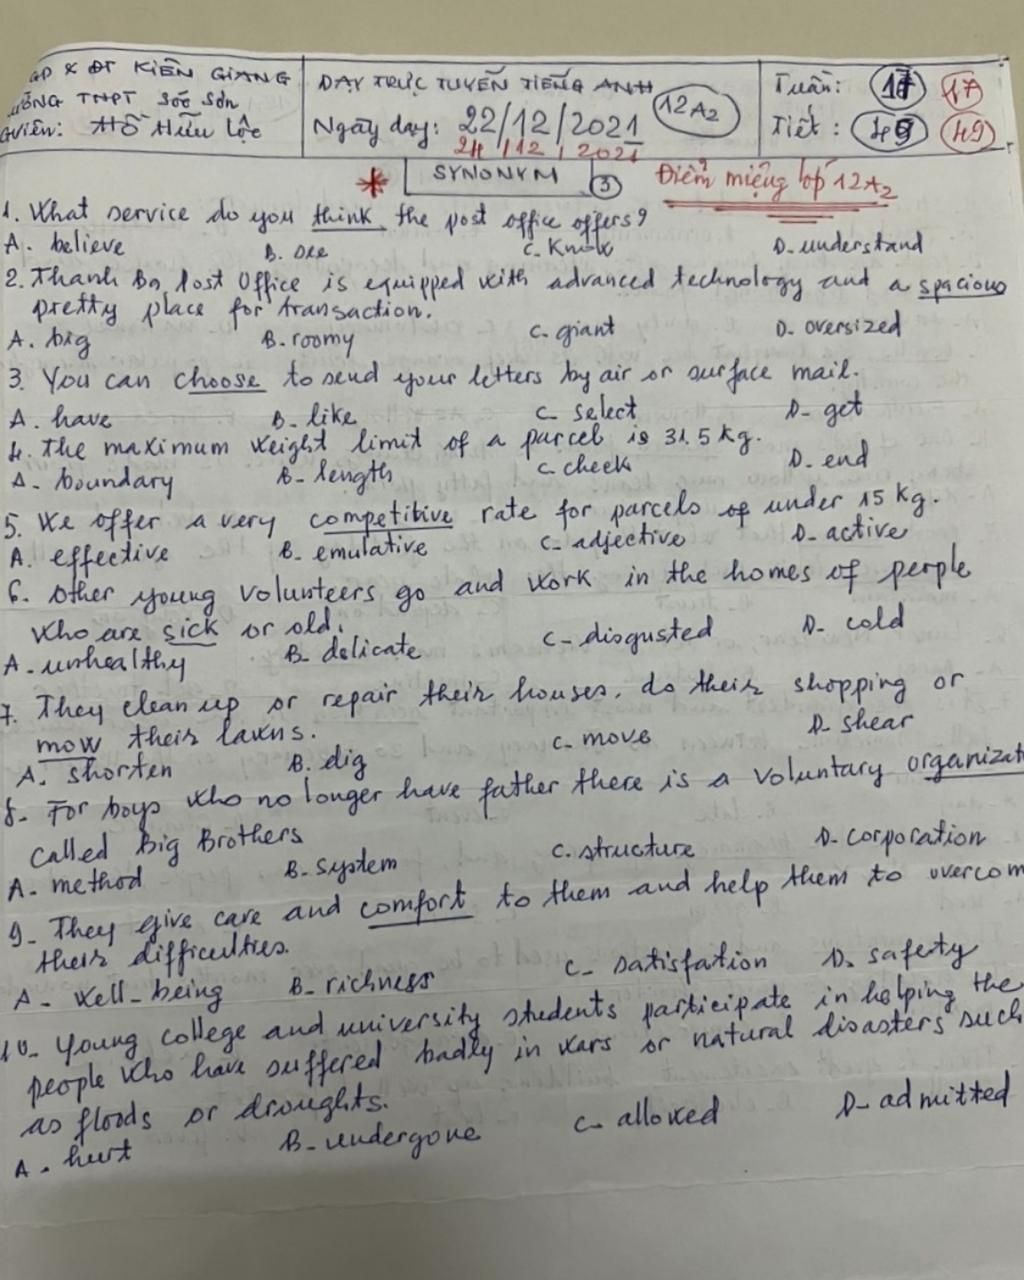 GD & ĐT KIÊN GIANG
ƯỜNG THPT Sóc Sơn
Gviên: Hồ Hữu Lộc
DẠY TRỰC TUYẾN TIẾNG ANH
12A2
Ngày dạy: 22/12/2021
24/12/2021
Tuần: 17 17
Tiết: 49 49
* SYNONYM 3
Điểm miệng lớp 12A2
1. What service do you think the post office offers?
A. believe B. see C. Know D. understand
2. Thanh Ba Post Office is equipped with advanced technology and a spacious
pretty place for transaction.
A. big B. roomy C. giant D. oversized
3. You can choose to send your letters by air or surface mail.
A. have B. like C. select D. get
4. The maximum weight limit of a parcel is 31.5 kg.
A. boundary B. length C. check D. end
5. We offer a very competitive rate for parcels of under 15 kg.
A. effective B. emulative C. adjective D. active
6. Other young volunteers go and work in the homes of people
who are sick or old.
A. unhealthy B. delicate C. disgusted D. cold
7. They clean up or repair their houses. do their shopping or
mow their lawns.
A. shorten B. dig C. move D. shear
8. For boys who no longer have father there is a voluntary organizat
called Big Brothers
A. method B. system C. structure D. corporation
9. They give care and comfort to them and help them to overcom
their difficulties.
A. well-being B. richness C. satisfation D. safety
10. Young college and university students participate in helping the
people who have suffered badly in wars or natural disasters such
as floods or droughts.
A. hurt B. undergone C. allowed D. admitted